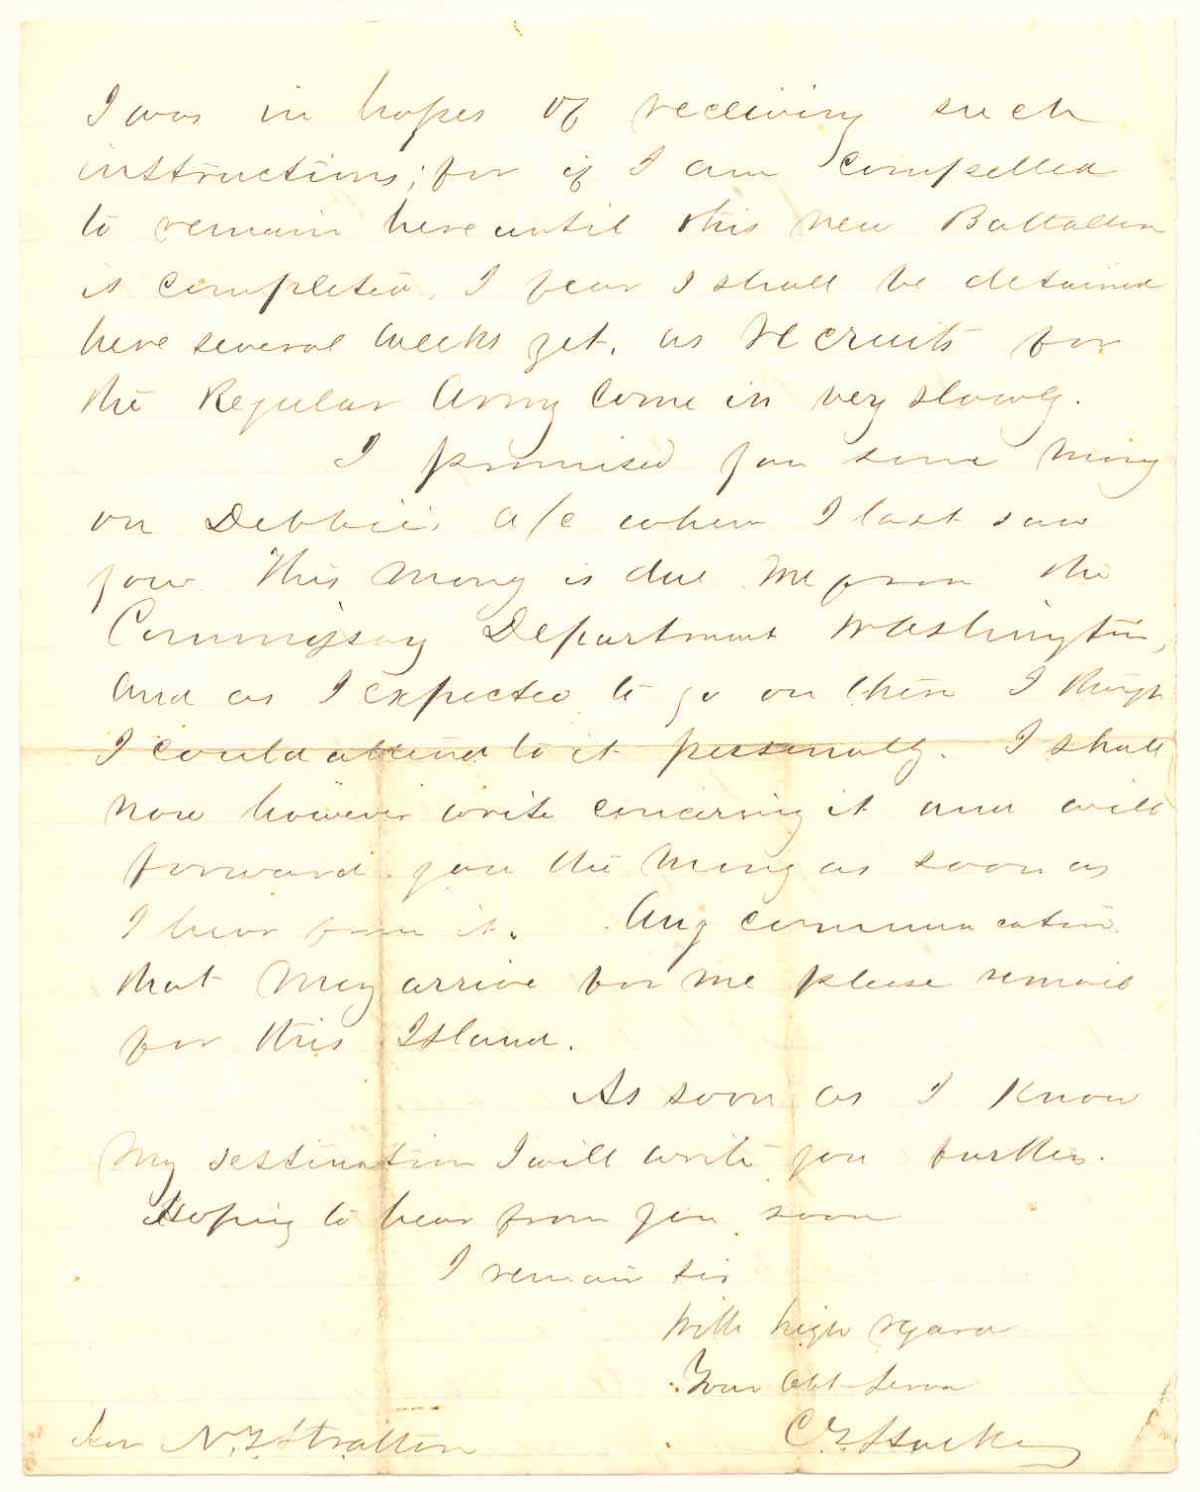 I was in hopes of receiving such
instructions; for if I am compelled
to remain here until this new Battalion
is completed, I fear I shall be detained
here several weeks yet, as recruits for
the Regular Army come in very slowly.
I promised you some money
on Debbie's a/c when I last saw
you. This money is due me from the
Commissary Department Washington,
and as I expected to go on there I though
I could attend to it personally. I shall
now however write concerning it and will
forward you the money as soon as
I hear from it. Any communication
that may arrive for me please remail
for this Island.
As soon as I know
my destination I will write you further.
Hoping to hear from you soon
I remain sir
With high regard
Your Obt Servn
N. Stratton